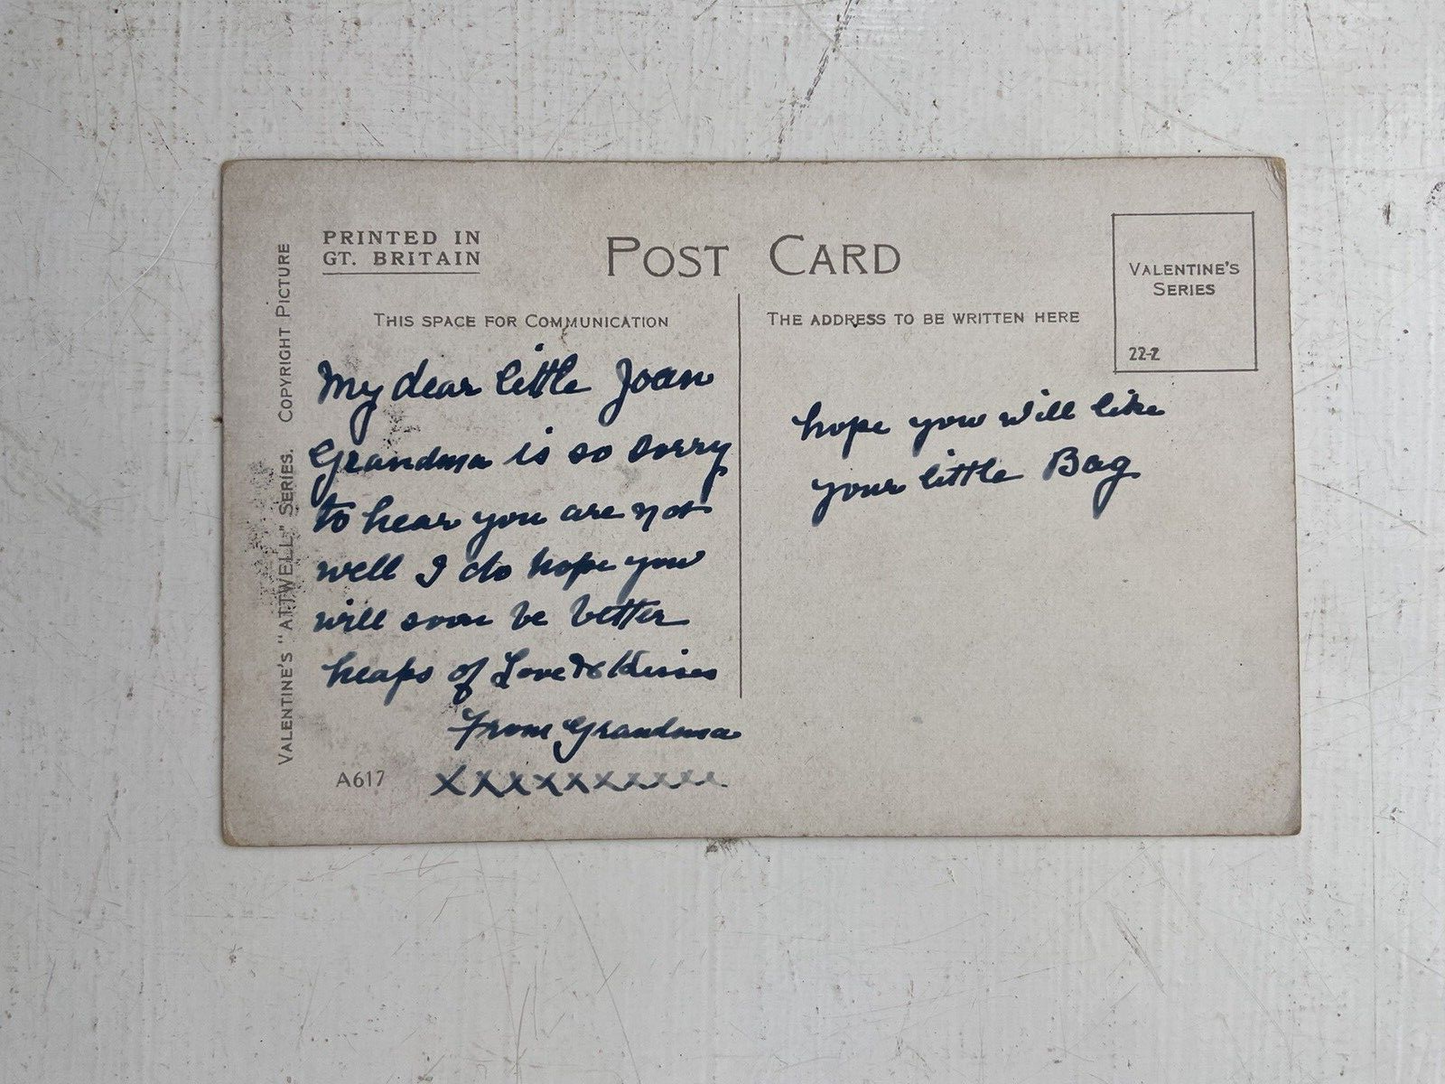 PRINTED IN
GT. BRITAIN
POST CARD
VALENTINE'S
SERIES
22-Z
VALENTINE'S "ATTWELL" SERIES. COPYRIGHT PICTURE
THIS SPACE FOR COMMUNICATION
My dear little Joan
Grandma is so sorry
to hear you are not
well I do hope you
will soon be better
heaps of Love & Kisses
From Grandma
xxxxxxxxxx
A617
THE ADDRESS TO BE WRITTEN HERE
hope you will like
your little Bag